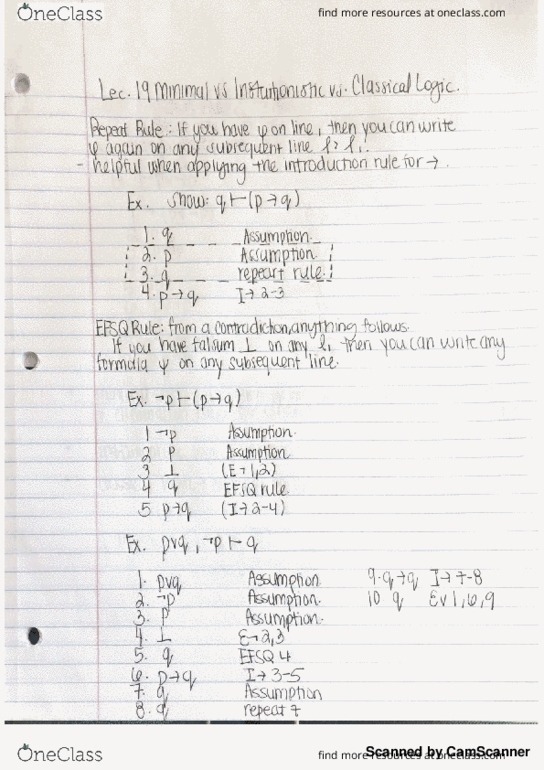 OneClass
find more resources at oneclass.com
Lec. 19 Minimal vs Instutionistic vs. Classical Logic.
Repeat Rule: If you have φ on line, then you can write
φ again on any subsequent line l > l₁.
- helpful when applying the introduction rule for →.
Ex. show: q⊢(p→q)
1. q Assumption.
2. p Assumption
3. q repeart rule.
4. p→q I→ 2-3
EFSQ Rule: from a contradiction, anything follows.
If you have falsum ⊥ on any l₁ then you can write any
formula ψ on any subsequent line.
Ex. ¬p⊢(p→q)
1 ¬p Assumption.
2 p Assumption.
3 ⊥ (E¬1,2)
4 q EFSQ rule.
5 p→q (I→2-4)
Ex. pvq, ¬p ⊢ q
1. pvq Assumption. 9. q→q I→7-8
2. ¬p Assumption. 10 q Ev 1,6,9
3. p Assumption.
4. ⊥ E¬2,3
5. q EFSQ 4
6. p→q I→3-5
7. q Assumption
8. q repeat 7
OneClass
find more resources at oneclass.com
Scanned by CamScanner